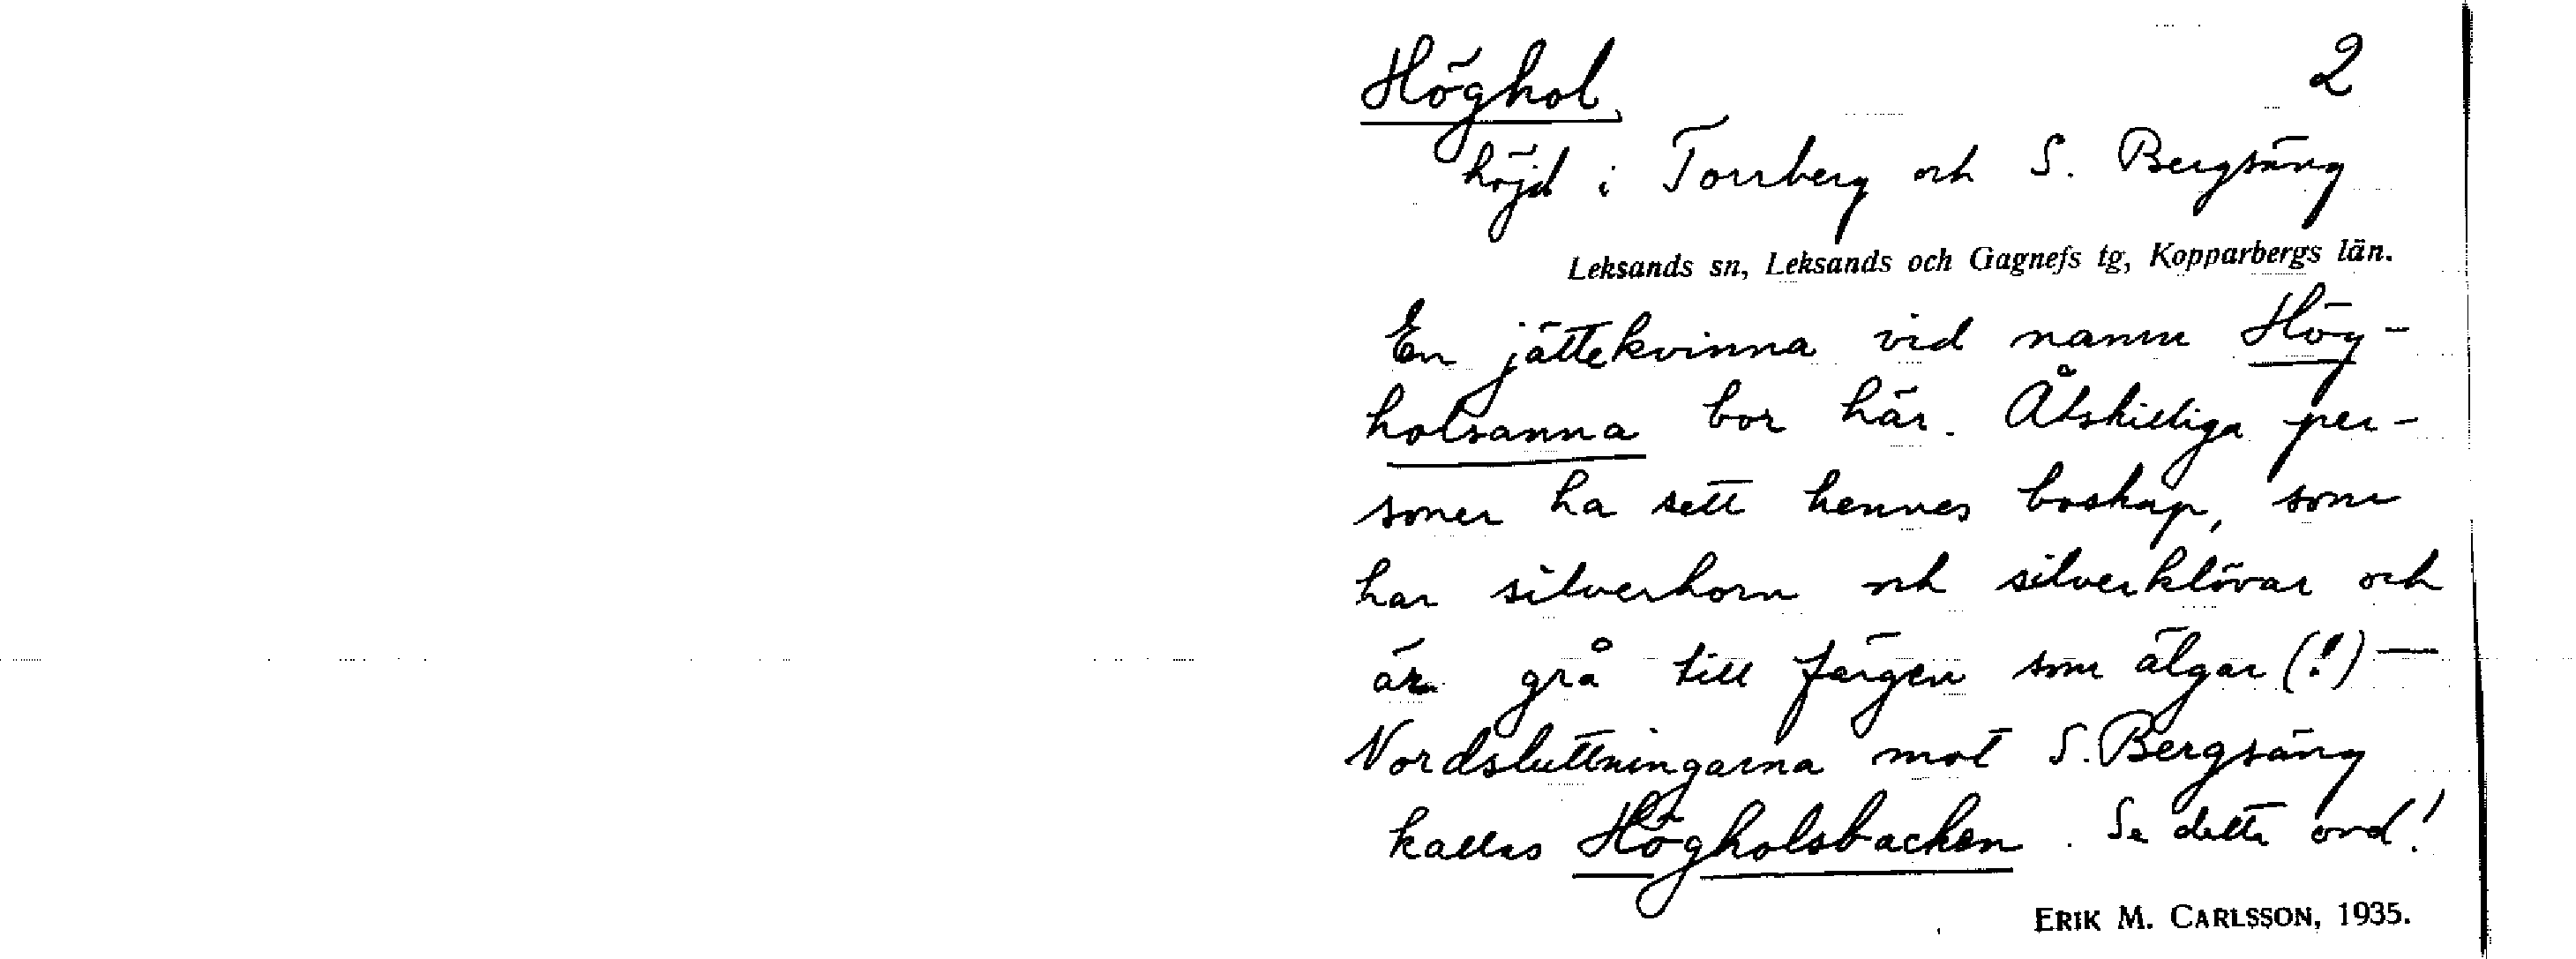 Höghol 2
höjd i Torrberg och S. Bergsäng
Leksands sn, Leksands och Gagnefs tg, Kopparbergs län.
En jättekvinna vid namn Hög-
holsanna bor här. Åtskilliga per-
soner ha sett hennes boskap, som
har silverhorn och silverklövar och
är grå till färgen som älgar (!) —
Nordsluttningarna mot S. Bergsäng
kallas Högholsbacken. Se detta ord!
ERIK M. CARLSSON, 1935.